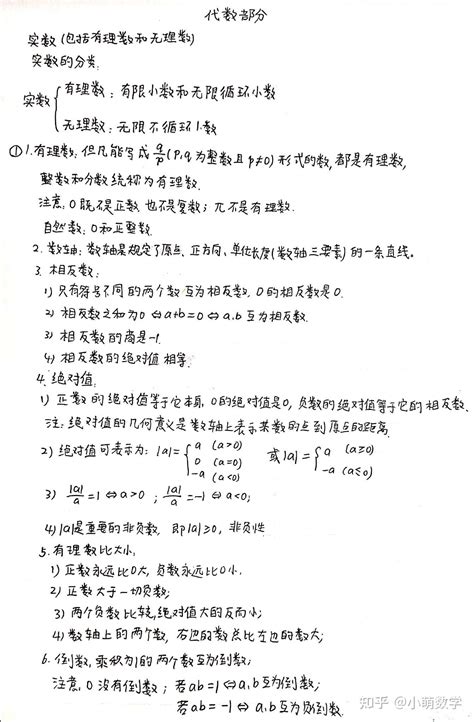 代数部分
实数(包括有理数和无理数)
实数的分类.
实数 { 有理数: 有限小数和无限循环小数
无理数: 无限不循环小数
① 1. 有理数: 但凡能写成 q/p (p,q为整数且p≠0) 形式的数, 都是有理数,
整数和分数统称为有理数.
注意: 0既不是正数也不是负数; π不是有理数.
自然数: 0和正整数
2. 数轴: 数轴是规定了原点、正方向、单位长度(数轴三要素)的一条直线。
3. 相反数:
1) 只有符号不同的两个数互为相反数, 0的相反数是0.
2) 相反数之和为0 ⇔ a+b=0 ⇔ a.b互为相反数.
3) 相反数的商是-1.
4) 相反数的绝对值相等.
4. 绝对值:
1) 正数的绝对值等于它本身, 0的绝对值是0, 负数的绝对值等于它的相反数.
注: 绝对值的几何意义是数轴上表示某数的点到原点的距离.
2) 绝对值可表示为: |a|={ a (a>0) 0 (a=0) -a (a<0) 或|a|={ a (a≥0) -a (a≤0)
3) |a|/a=1 ⇔ a>0 ; |a|/a=-1 ⇔ a<0;
4) |a|是重要的非负数, 即|a|≥0, 非负性
5. 有理数比大小.
1) 正数永远比0大, 负数永远比0小.
2) 正数大于一切负数;
3) 两个负数比较, 绝对值大的反而小;
4) 数轴上的两个数, 右边的数总比左边的数大;
6. 倒数, 乘积为1的两个数互为倒数;
注意: 0没有倒数; 若ab=1 ⇔ a,b互为倒数;
若ab=-1 ⇔ a.b互为负倒数.
知乎 @小萌数学